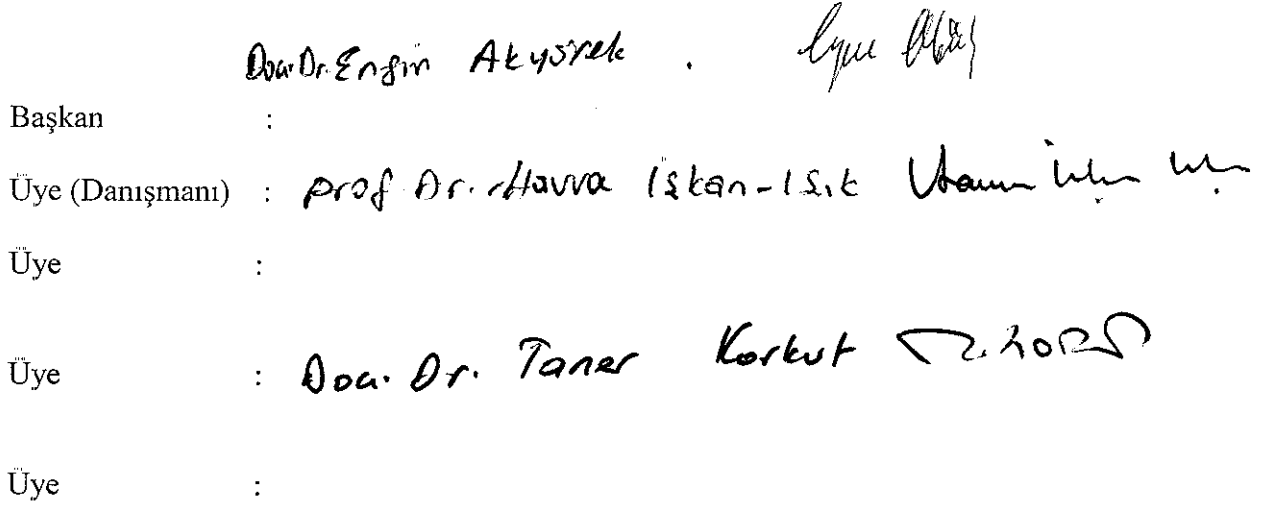 Doç. Dr. Engin Akyürek .
Başkan :
Üye (Danışmanı) : Prof Dr. Havva İşkan-Işık
Üye :
Üye : Doç. Dr. Taner Korkut
Üye :